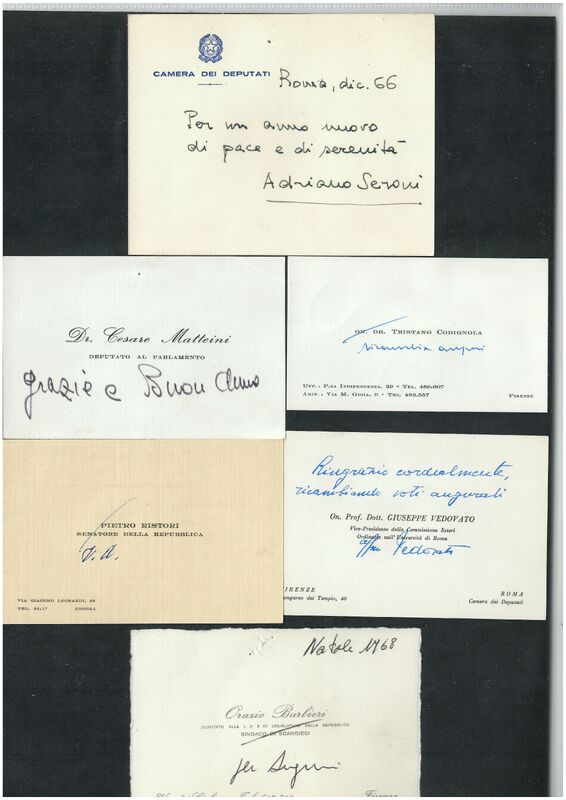 CAMERA DEI DEPUTATI
Roma, dic. 66
Per un anno nuovo
di pace e di serenità
Adriano Seroni
Dr. Cesare Matteini
DEPUTATO AL PARLAMENTO
grazie e Buon Anno
ON. DR. TRISTANO CODIGNOLA
ricambia auguri
UFF.: P.ZA INDIPENDENZA, 29 - TEL. 489.607
ABIT.: VIA M. GIOIA, 9 - TEL. 483.557
FIRENZE
PIETRO RISTORI
SENATORE DELLA REPUBBLICA
VIA GIACOMO LEOPARDI,
TEL. 84.17 EMPOLI
Ringrazio cordialmente,
ricambiando voti augurali
On. Prof. Dott. GIUSEPPE VEDOVATO
Vice-Presidente della Commissione Esteri
Ordinario nell'Università di Roma
aff.mo Vedovato
FIRENZE
del Tempio, 40
ROMA
Camera dei Deputati
Natale 1968
Orazio Barbieri
DEPUTATO ALLA I, II E III LEGISLATURA DELLA REPUBBLICA
SINDACO DI SCANDICCI
per Auguri
Firenze